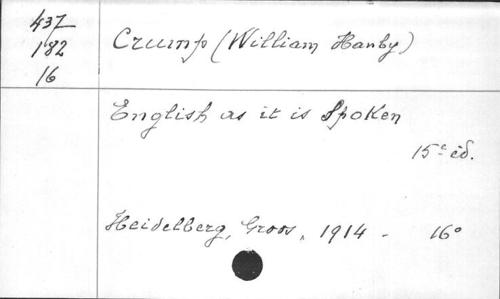 437
182
16
Crump (William Hanby)
English as it is Spoken
15e éd.
Heidelberg, Groos, 1914 - 16°